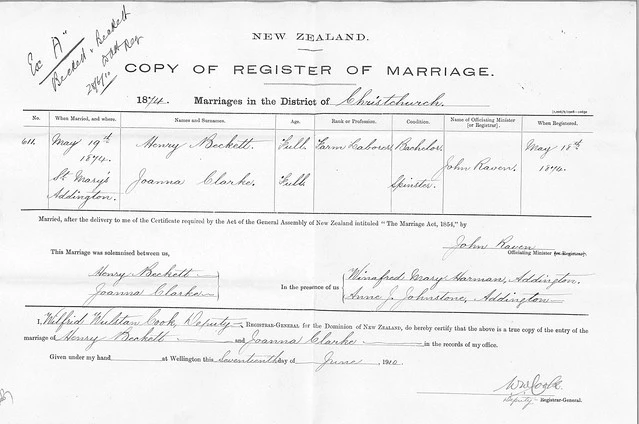 Ex "A"
Beckett v Beckett
NEW ZEALAND.
COPY OF REGISTER OF MARRIAGE.
1874. Marriages in the District of Christchurch.
No. When Married, and where. Names and Surname. Age. Rank or Profession. Condition. Name of Officiating Minister [or Registrar]. When Registered.
611. May 19th Henry Beckett. Full. Farm Laborer Bachelor May 18th
1874. John Raven. 1874.
St. Mary's Joanna Clarke. Full Spinster.
Addington.
Married, after the delivery to me of the Certificate required by the Act of the General Assembly of New Zealand intituled "The Marriage Act, 1854," by
John Raven
Officiating Minister (or Registrar).
This Marriage was solemnised between us,
Henry Beckett Winafred Mary Harman, Addington.
In the presence of us
Joanna Clarke Anne J. Johnstone, Addington
I, Wilfrid Wulstan Cook, Deputy Registrar-General for the Dominion of New Zealand, do hereby certify that the above is a true copy of the entry of the
marriage of Henry Beckett and Joanna Clarke in the records of my office.
Given under my hand at Wellington this Seventeenth day of June 1910.
WW Cook
Deputy Registrar-General.